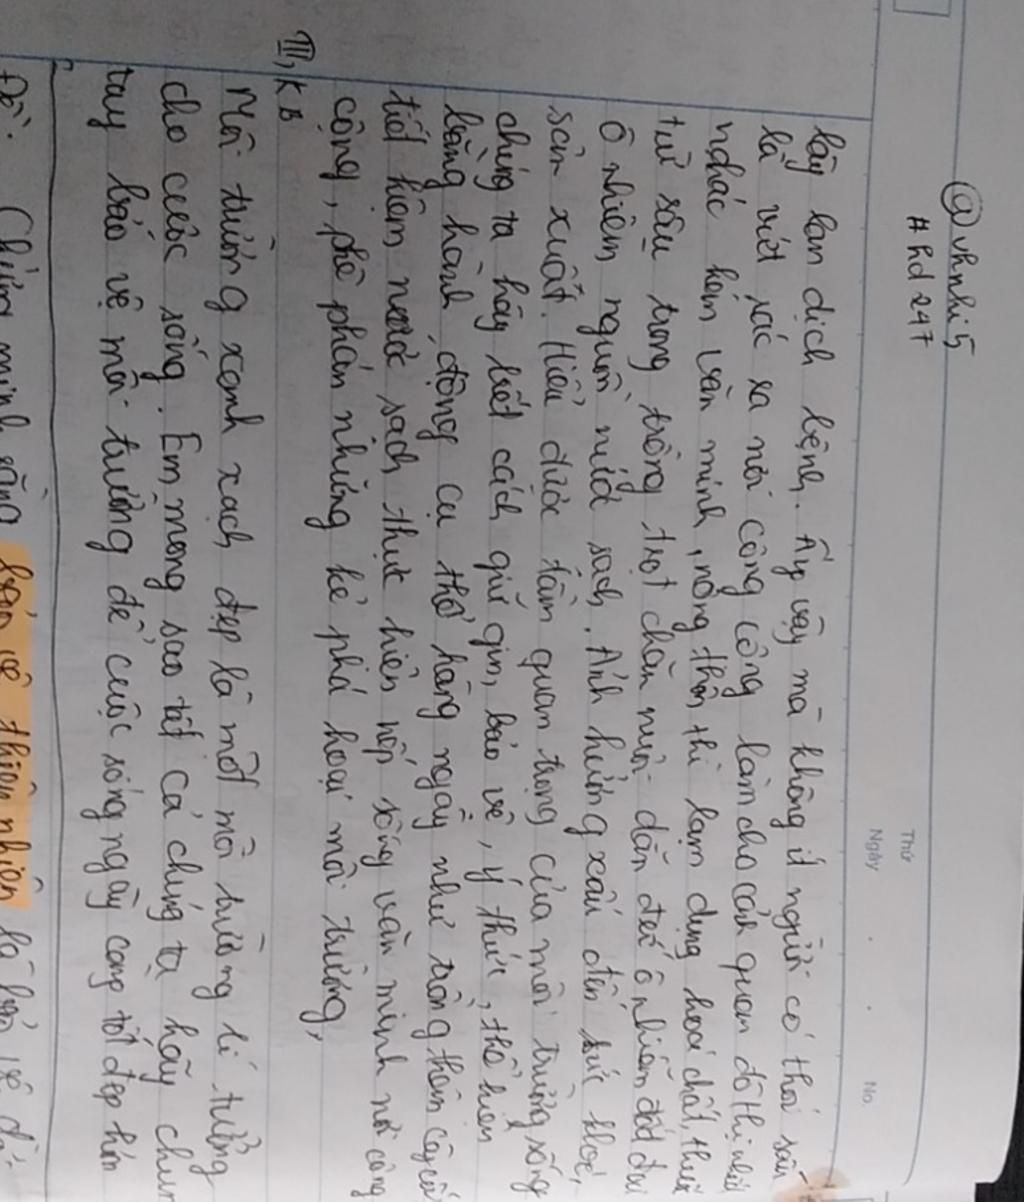 @vhnhi5
#hd247
Thứ
Ngày
No.
lây lan dịch bệnh. Ấy vậy mà không ít người có thói xấu
là vứt rác ra nơi công cộng làm cho cảnh quan đô thị
nhếc hém văn minh, nông thôn thì lạm dụng hoá chất, thuốc
trừ sâu trong trồng trọt chăn nuôi dẫn đến ô nhiễm đất đai
ô nhiễm nguồn nước sạch. Ảnh hưởng xấu đến sức khoẻ,
sản xuất. Hiểu được tầm quan trọng của môi trường sống
chúng ta hãy biết cách giữ gìn, bảo vệ, ý thức, thể hiện
bằng hành động cụ thể hàng ngày như trồng thêm cây cối
tiết kiệm nước sạch thực hiện nếp sống văn minh nơi công
cộng, phê phán những kẻ phá hoại môi trường,
III, KB
Môi trường xanh sạch đẹp là một môi trường lí tưởng
cho cuộc sống. Em mong sao tất cả chúng ta hãy chung
tay bảo vệ môi trường để cuộc sống ngày càng tốt đẹp hơn
Đề: Chứng minh rằng bảo vệ thiên nhiên là bảo vệ